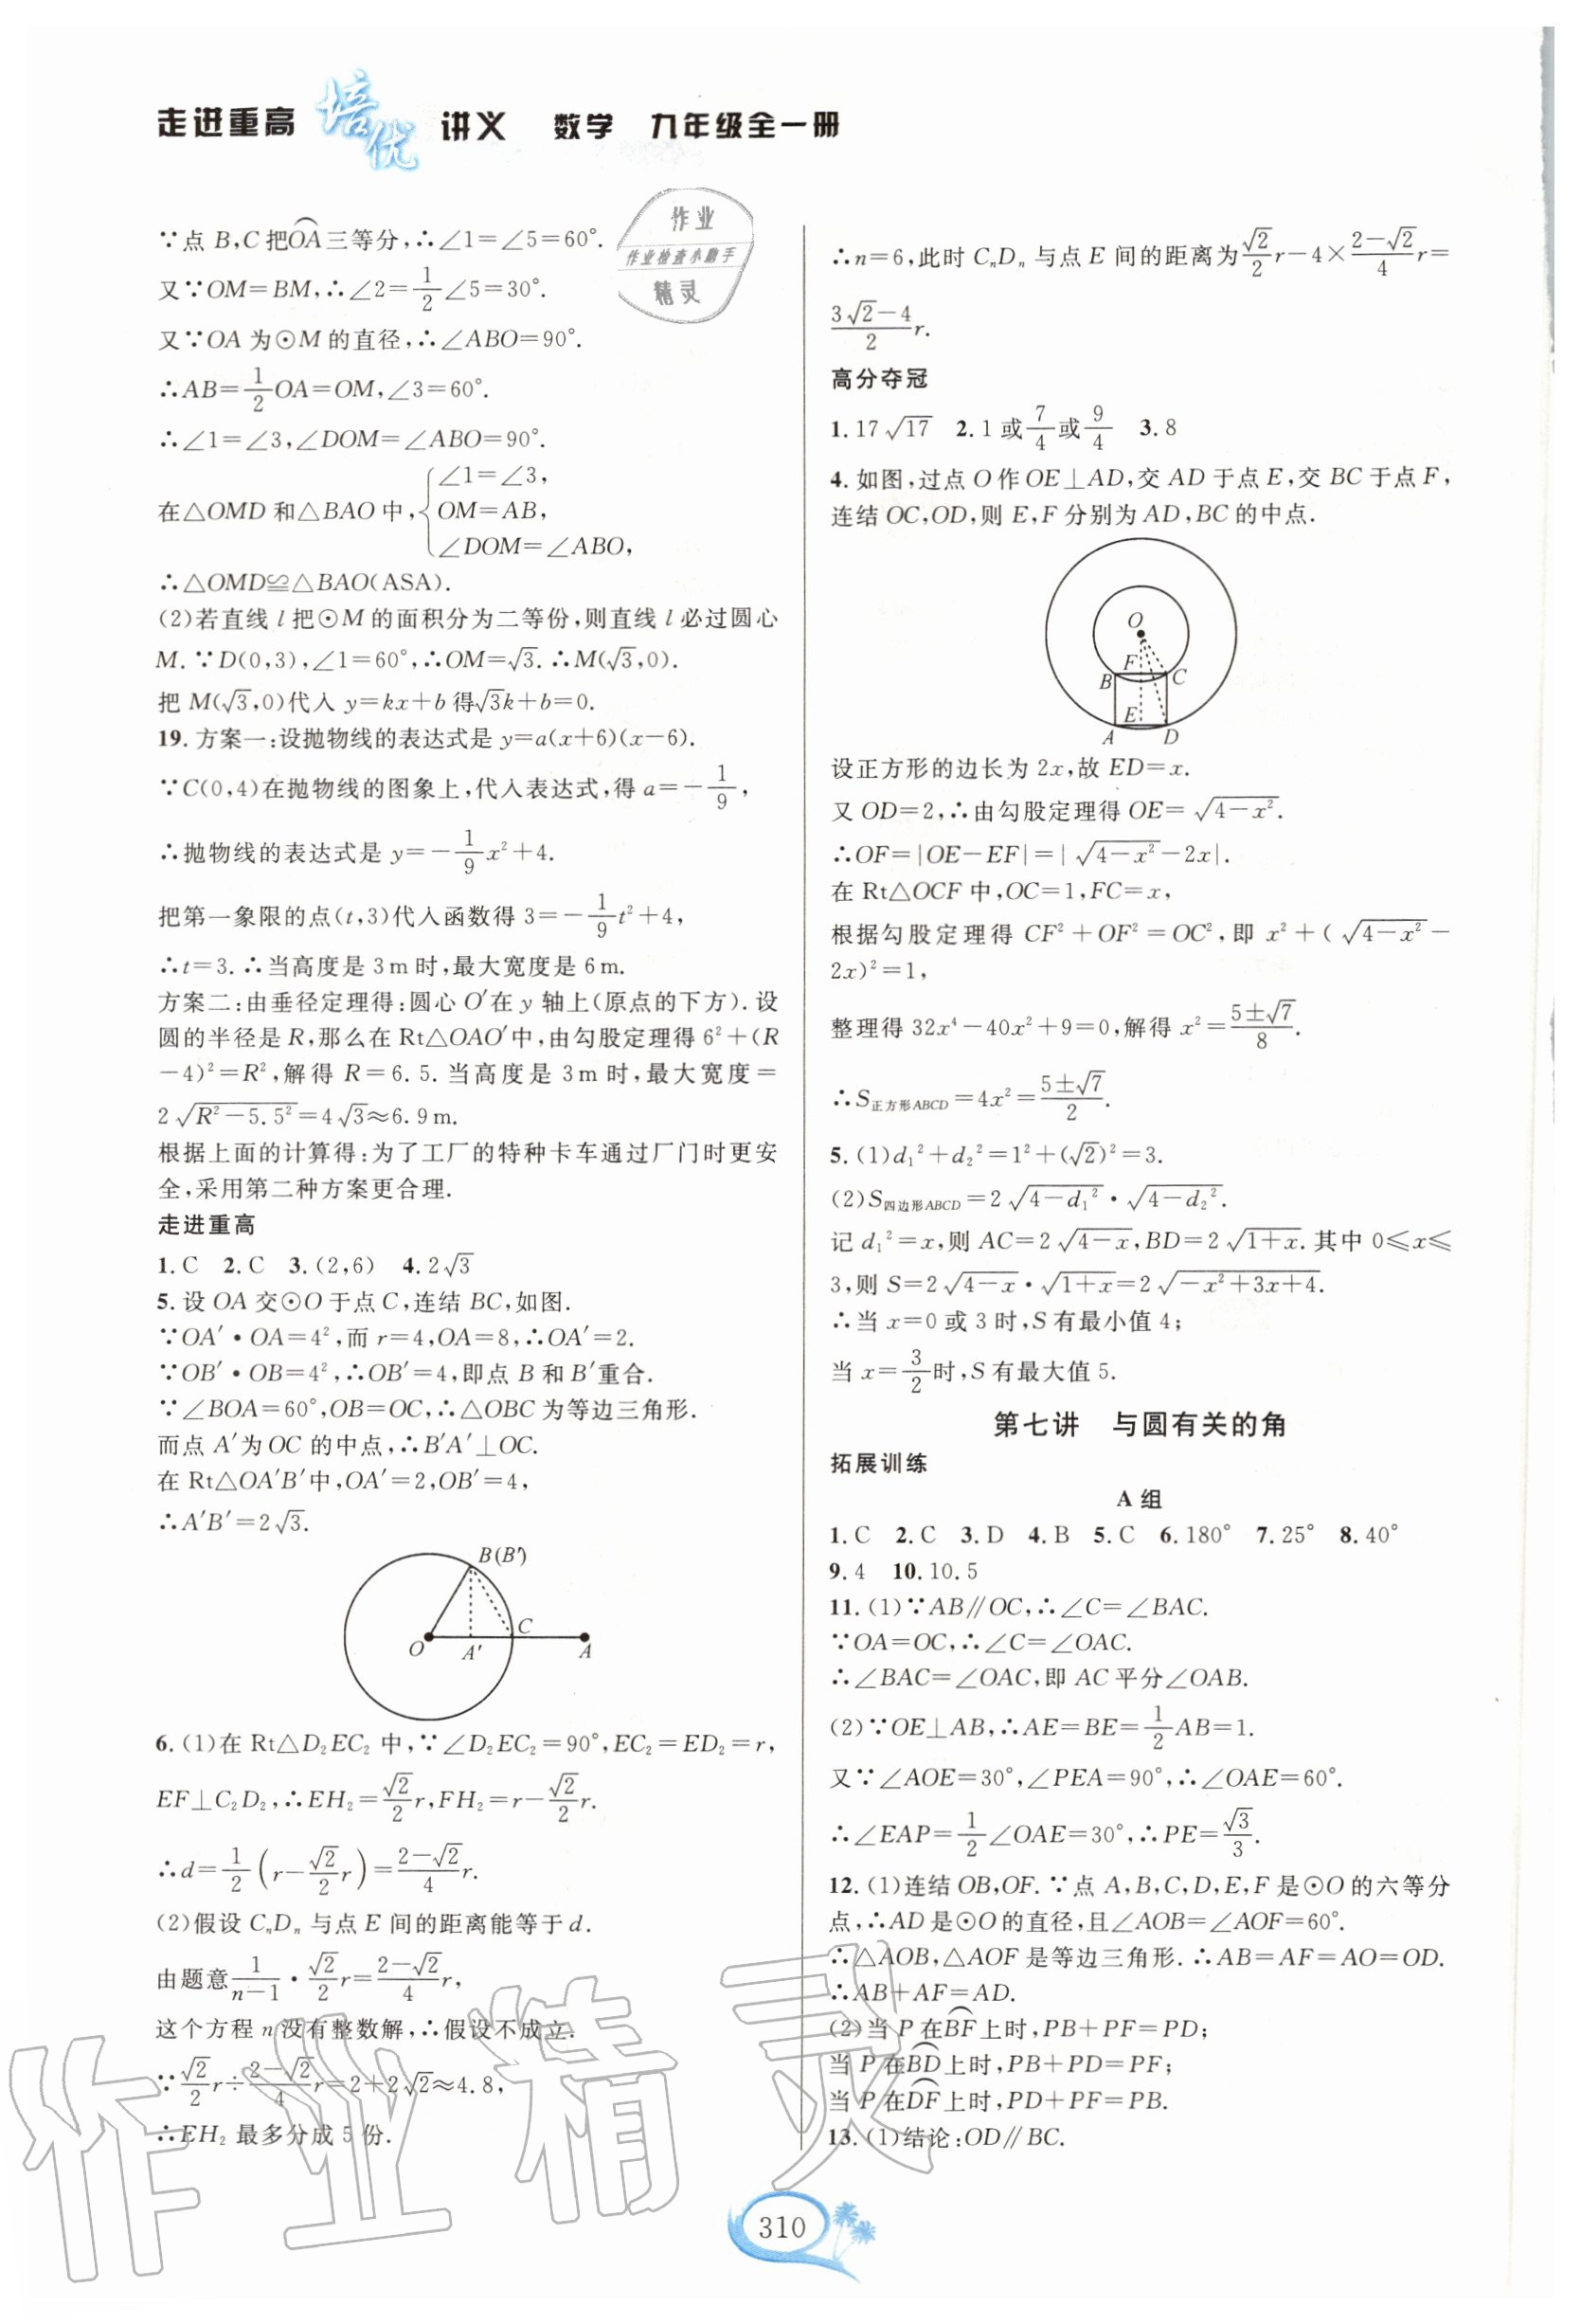 走进重高 培优 讲义 数学 九年级全一册
作业
作业检查小助手
精灵
∵点 B,C 把OA三等分,∴∠1=∠5=60°.
又∵OM=BM,∴∠2=1/2∠5=30°.
又∵OA 为⊙M 的直径,∴∠ABO=90°.
∴AB=1/2OA=OM,∠3=60°.
∴∠1=∠3,∠DOM=∠ABO=90°.
在△OMD 和△BAO 中,{∠1=∠3,
OM=AB,
∠DOM=∠ABO,
∴△OMD≌△BAO(ASA).
(2)若直线 l 把⊙M 的面积分为二等份,则直线 l 必过圆心
M.∵D(0,3),∠1=60°,∴OM=√3.∴M(√3,0).
把 M(√3,0)代入 y=kx+b 得√3k+b=0.
19.方案一:设抛物线的表达式是 y=a(x+6)(x-6).
∵C(0,4)在抛物线的图象上,代入表达式,得 a=-1/9,
∴抛物线的表达式是 y=-1/9x²+4.
把第一象限的点(t,3)代入函数得 3=-1/9t²+4,
∴t=3.∴当高度是 3 m 时,最大宽度是 6 m.
方案二:由垂径定理得:圆心 O′在 y 轴上(原点的下方).设
圆的半径是 R,那么在 Rt△OAO′中,由勾股定理得 6²+(R
-4)²=R²,解得 R=6.5.当高度是 3 m 时,最大宽度=
2√(R²-5.5²)=4√3≈6.9 m.
根据上面的计算得:为了工厂的特种卡车通过厂门时更安
全,采用第二种方案更合理.
走进重高
1.C 2.C 3.(2,6) 4.2√3
5.设 OA 交⊙O 于点 C,连结 BC,如图.
∵OA′·OA=4²,而 r=4,OA=8,∴OA′=2.
∵OB′·OB=4²,∴OB′=4,即点 B 和 B′重合.
∵∠BOA=60°,OB=OC,∴△OBC 为等边三角形.
而点 A′为 OC 的中点,∴B′A′⊥OC.
在 Rt△OA′B′中,OA′=2,OB′=4,
∴A′B′=2√3.
B(B′)
C
O A′ A
6.(1)在 Rt△D₂EC₂ 中,∵∠D₂EC₂=90°,EC₂=ED₂=r,
EF⊥C₂D₂,∴EH₂=√2/2r,FH₂=r-√2/2r.
∴d=1/2(r-√2/2r)=(2-√2)/4r.
(2)假设 CₙDₙ 与点 E 间的距离能等于 d.
由题意1/(n-1)·√2/2r=(2-√2)/4r,
这个方程 n 没有整数解,∴假设不成立.
∵√2/2r÷(2-√2)/4r=2+2√2≈4.8,
∴EH₂ 最多分成 5 份.
∴n=6,此时 CₙDₙ 与点 E 间的距离为√2/2r-4×(2-√2)/4r=
(3√2-4)/2r.
高分夺冠
1.17√17 2.1或7/4或9/4 3.8
4.如图,过点 O 作 OE⊥AD,交 AD 于点 E,交 BC 于点 F,
连结 OC,OD,则 E,F 分别为 AD,BC 的中点.
O
F
B C
E
A D
设正方形的边长为 2x,故 ED=x.
又 OD=2,∴由勾股定理得 OE=√(4-x²).
∴OF=|OE-EF|=|√(4-x²)-2x|.
在 Rt△OCF 中,OC=1,FC=x,
根据勾股定理得 CF²+OF²=OC²,即 x²+(√(4-x²)-
2x)²=1,
整理得 32x⁴-40x²+9=0,解得 x²=(5±√7)/8.
∴S正方形ABCD=4x²=(5±√7)/2.
5.(1)d₁²+d₂²=1²+(√2)²=3.
(2)S四边形ABCD=2√(4-d₁²)·√(4-d₂²).
记 d₁²=x,则 AC=2√(4-x),BD=2√(1+x).其中 0≤x≤
3,则 S=2√(4-x)·√(1+x)=2√(-x²+3x+4).
∴当 x=0 或 3 时,S 有最小值 4;
当 x=3/2时,S 有最大值 5.
第七讲 与圆有关的角
拓展训练
A 组
1.C 2.C 3.D 4.B 5.C 6.180° 7.25° 8.40°
9.4 10.10.5
11.(1)∵AB∥OC,∴∠C=∠BAC.
∵OA=OC,∴∠C=∠OAC.
∴∠BAC=∠OAC,即 AC 平分∠OAB.
(2)∵OE⊥AB,∴AE=BE=1/2AB=1.
又∵∠AOE=30°,∠PEA=90°,∴∠OAE=60°.
∴∠EAP=1/2∠OAE=30°,∴PE=√3/3.
12.(1)连结 OB,OF.∵点 A,B,C,D,E,F 是⊙O 的六等分
点,∴AD 是⊙O 的直径,且∠AOB=∠AOF=60°.
∴△AOB,△AOF 是等边三角形.∴AB=AF=AO=OD.
∴AB+AF=AD.
(2)当 P 在BF上时,PB+PF=PD;
当 P 在BD上时,PB+PD=PF;
当 P 在DF上时,PD+PF=PB.
13.(1)结论:OD∥BC.
作业精灵
310